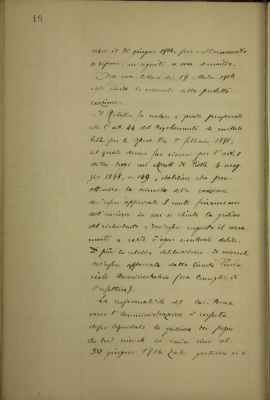 19
verso il 30 giugno 1914, fece collocamento
a riposo in seguito a sua domanda.
Ora con lettera del 19 Ottobre 1914
egli chiede lo svincolo della predetta
cauzione.
Il Relatore fa notare a questo proposito
che l'art. 44 del Regolamento di contabi
lità per le Opere Pie 5 febbraio 1891,
al quale devesi far ricorso per l'art. 1
della legge sui Monti di Pietà 4 mag
gio 1898, n. 169, stabilisce che per
ottenere lo svincolo della cauzione
dev'essere approvato il conto finanziario
dell'esercizio in cui si chiude la gestione
del richiedente e dev'essere seguito il versa
mento a saldo d'ogni eventuale debito.
Di più la relativa deliberazione di svincolo
dev'essere approvata dalla Giunta Provin
ciale Amministrativa (ora Consiglio di
Prefettura).
La responsabilità del Cav.
verso l'Amministrazione è cessata
dopo liquidata la gestione dei pegni
da lui ricevuti in carico sino al
30 giugno 1914. Tale gestione si è